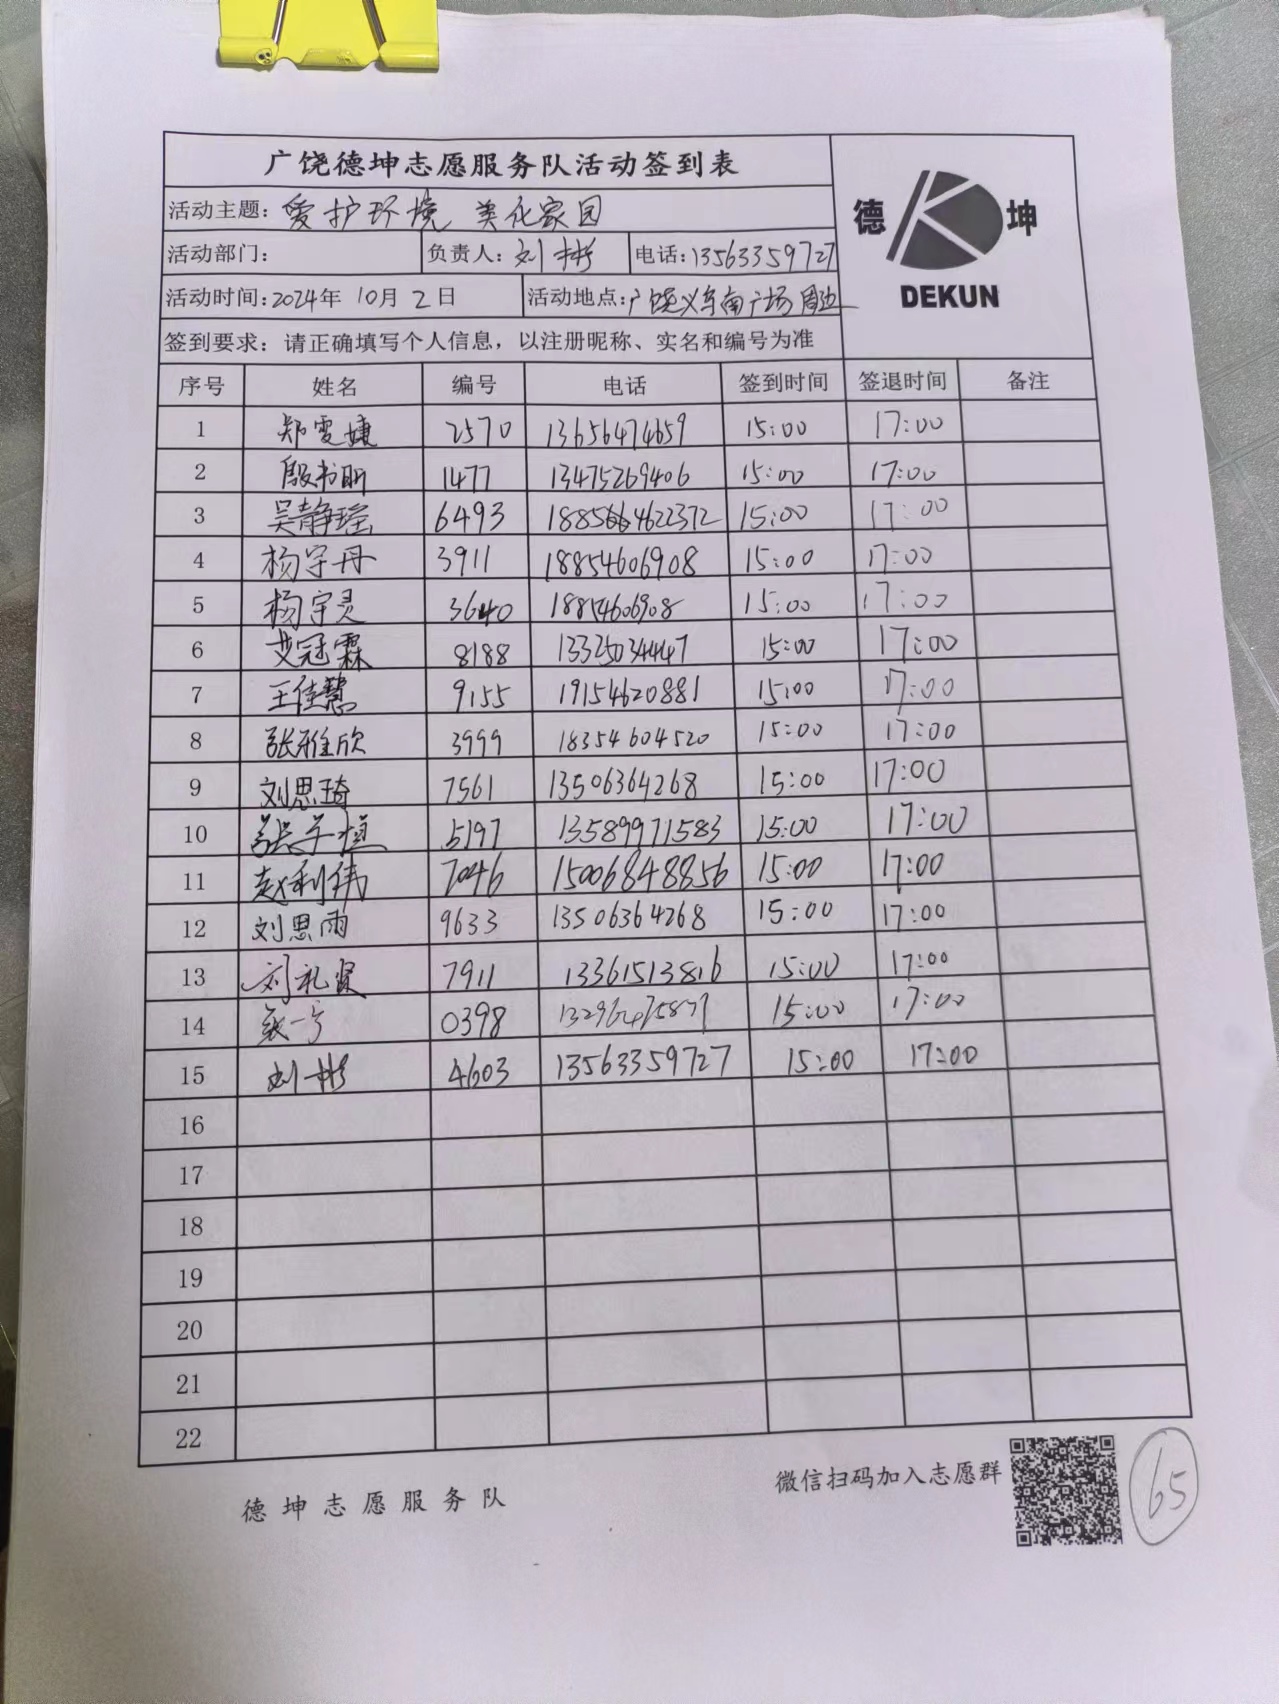 广饶德坤志愿服务队活动签到表
德 坤
DEKUN
活动主题：爱护环境 美化家园
活动部门： 负责人：刘彬 电话：13563359727
活动时间：2024年 10月 2日 活动地点：广饶义乌南广场周边
签到要求：请正确填写个人信息，以注册昵称、实名和编号为准
序号 姓名 编号 电话 签到时间 签退时间 备注
1 郑雯婕 2570 13656474659 15:00 17:00
2 殷书明 1477 13475269406 15:00 17:00
3 吴静瑶 6493 15:00 17:00
4 杨宇丹 3911 18854606908 15:00 17:00
5 杨宇灵 3640 18854606908 15:00 17:00
6 艾冠霖 8188 13325034447 15:00 17:00
7 王佳慧 9155 19154620881 15:00 17:00
8 张雅欣 3999 18354604520 15:00 17:00
9 刘思琦 7561 13506364268 15:00 17:00
10 5197 13589971583 15:00 17:00
11 赵利伟 7046 15006848856 15:00 17:00
12 刘思雨 9633 13506364268 15:00 17:00
13 刘礼贤 7911 13361513816 15:00 17:00
14 0398 15:00 17:00
15 刘彬 4603 13563359727 15:00 17:00
16
17
18
19
20
21
22
德坤志愿服务队
微信扫码加入志愿群
65